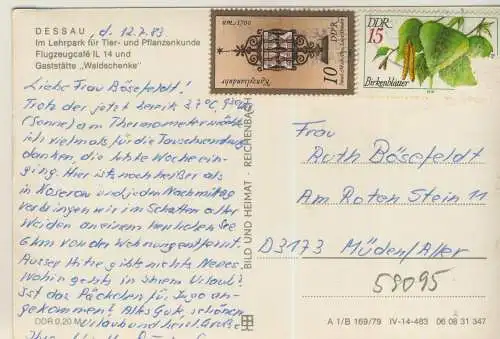 DESSAU, d. 12.7.83
Im Lehrpark für Tier- und Pflanzenkunde
Flugzeugcafé IL 14 und
Gaststätte „Waldschenke"
Liebe Frau Bösefeldt!
Trotz der jetzt bereits 37°C,
(Sonne) am Thermometer
ich vielmals für die Tauschsendung
danken, die letzte Woche ein-
ging. Hier ist noch heißer als
in Koserow und jeden Nachmittag
verbringen wir im Schatten alter
Weiden an einem herrlichen See
6 km von der Wohnung entfernt.
Ausser Hitze gibts nichts Neues.
Wohin gehts in Ihrem Urlaub?
Ist das Päckchen für Ingo an-
gekommen? Alles Gute, schönen
Urlaub und herzl. Grüße
DDR 0,20 M
BILD UND HEIMAT · REICHENBACH
10
DDR
Kunstguß
DDR
15
Birkenblätter
Frau
Ruth Bösefeldt
Am Roten Stein 11
D 3173 Müden/Aller
58095
A 1/B 169/79 IV-14-483 06 08 31 347